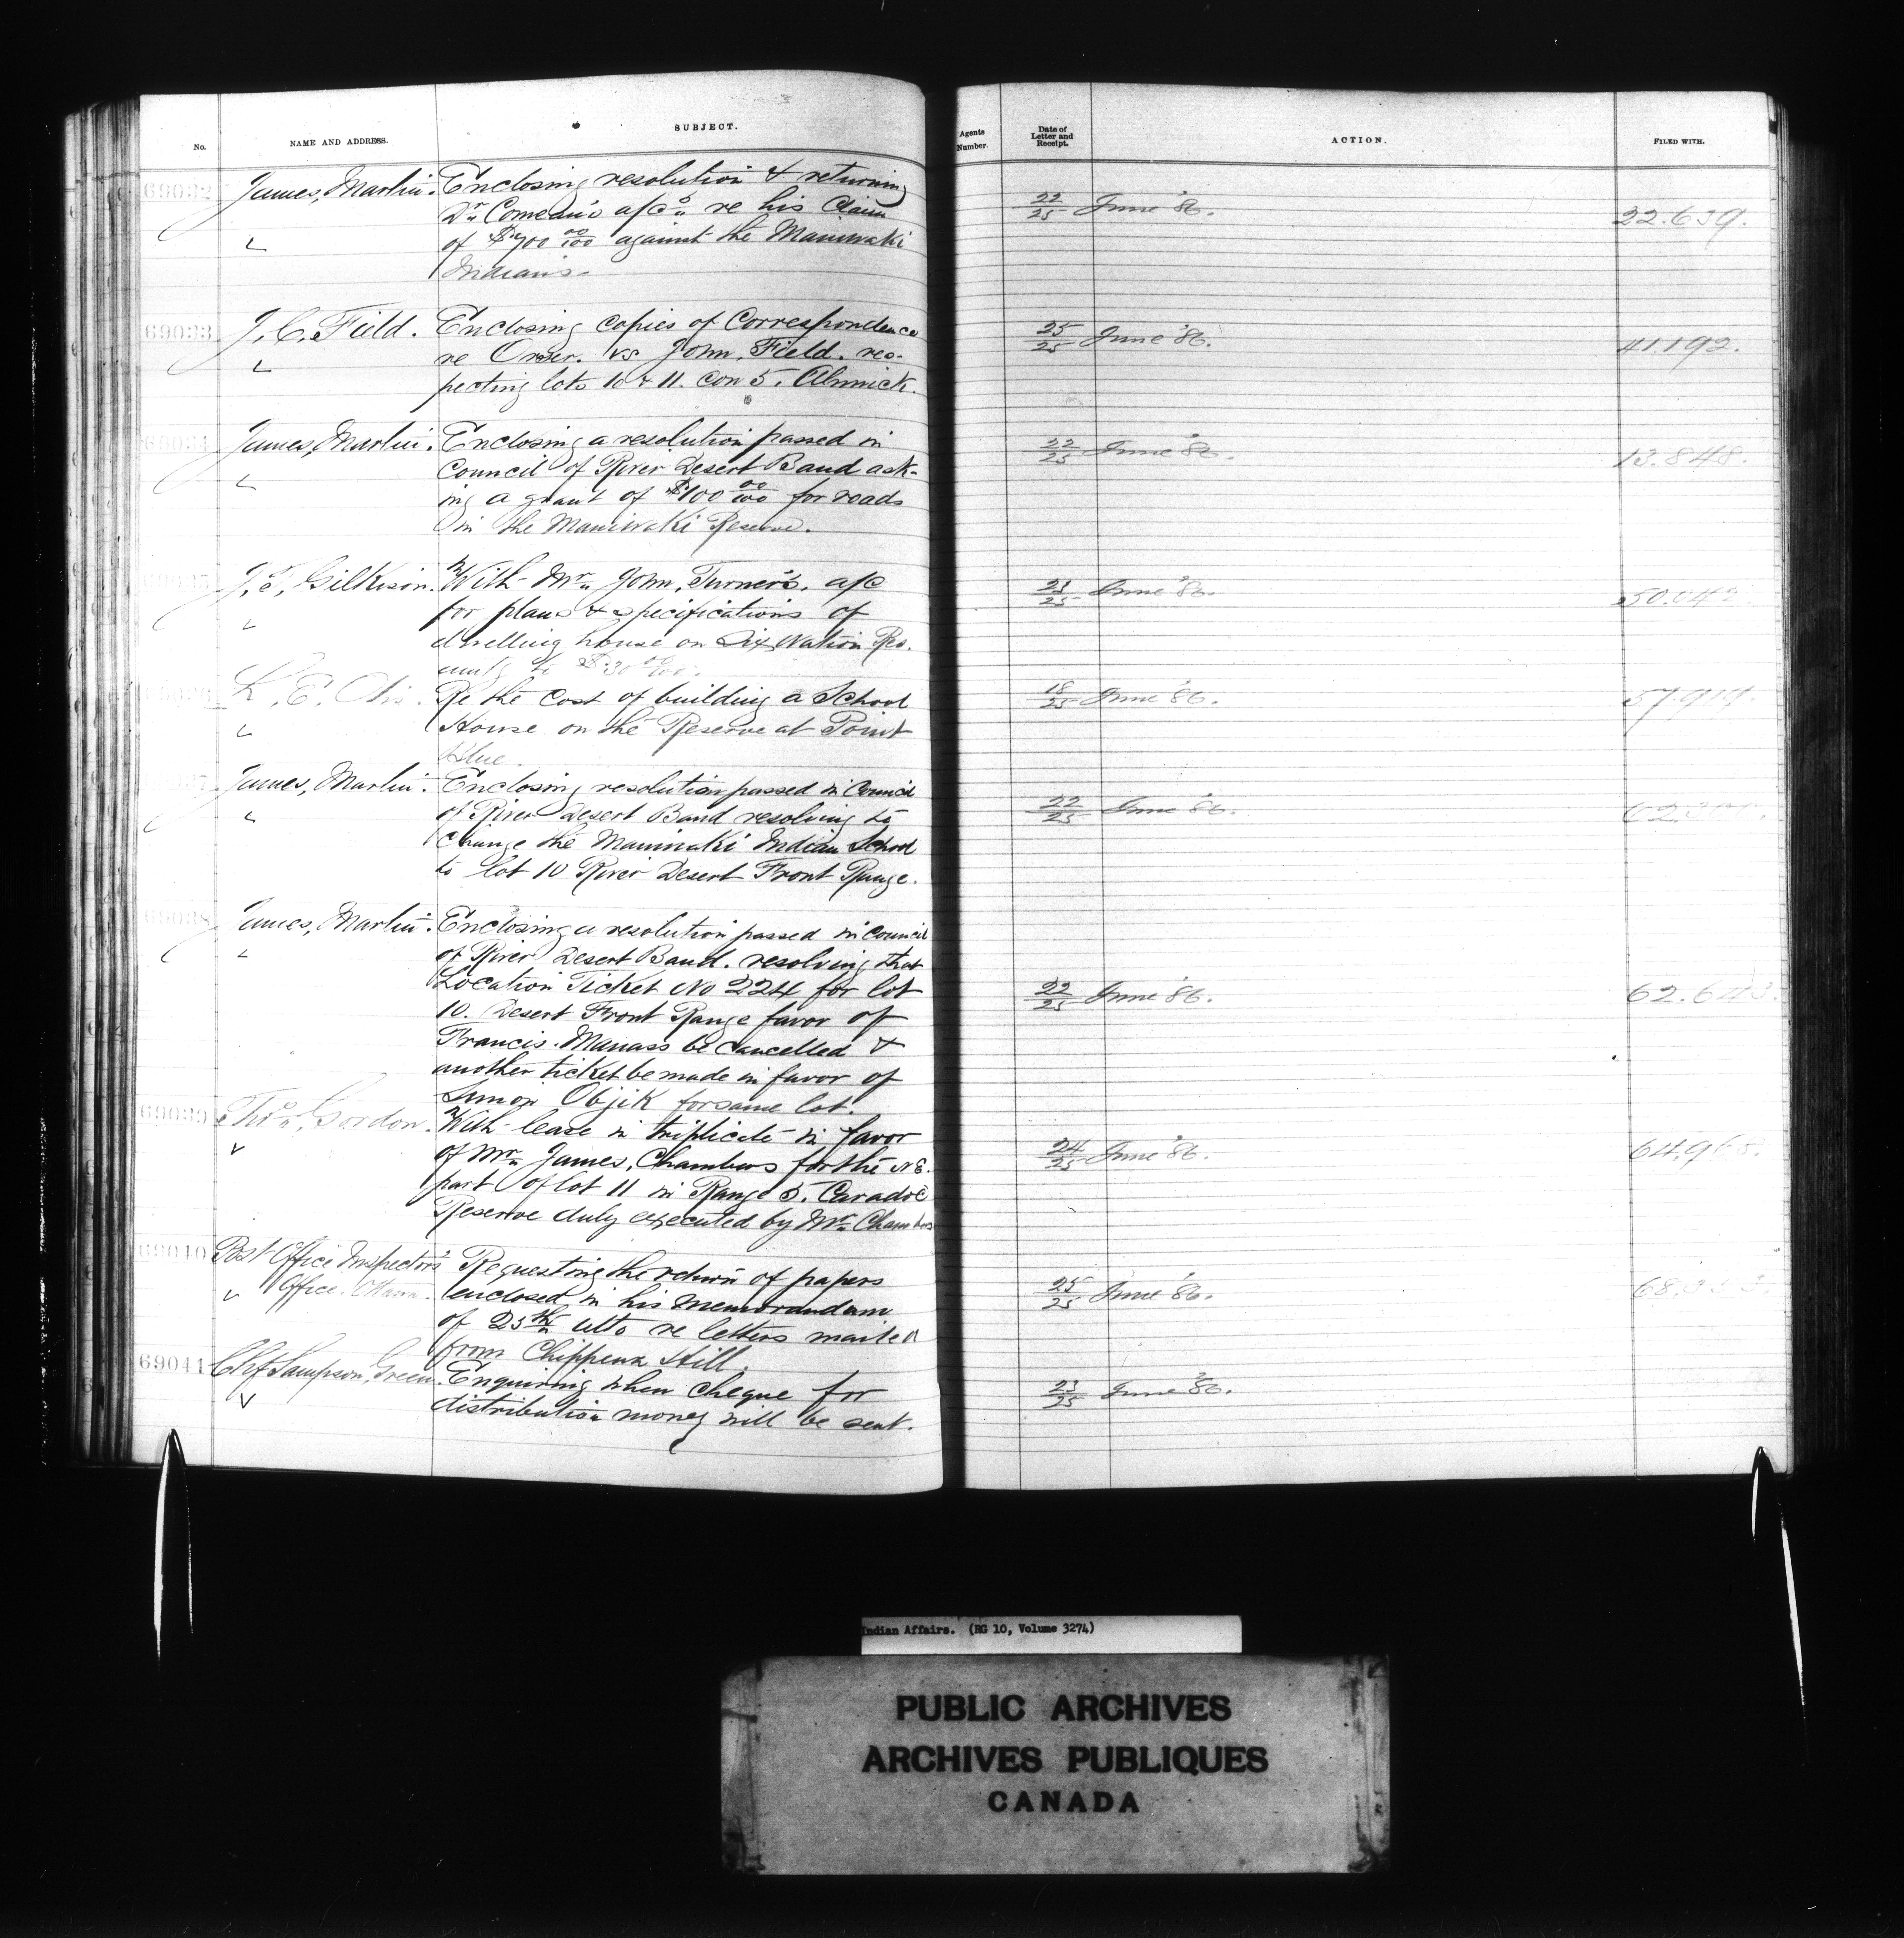 No. NAME AND ADDRESS. SUBJECT. Agents Number. Date of Letter and Receipt. ACTION. FILED WITH.
69032 James, Martin. Enclosing resolution & returning
Dr. Comeau's a/cs re his Claim 22/25 June '86. 22.639.
of $700 00/100 against the Maniwaki
Indians.
69033 J. C. Field. Enclosing copies of Correspondence 25/25 June '86. 41.192.
re Orser. vs John, Field. res-
pecting lots 10 & 11. Con 5. Alnwick.
69034 James, Martin. Enclosing a resolution passed in 22/25 June '86. 13.848.
Council of River Desert Band ask-
ing a grant of $100 00/100 for roads
in the Maniwaki Reserve.
J. T. Gilkison. With Mr. John, Turner's. a/c 23/25 June '86.
for plans & specifications of
dwelling house on Six Nation Res.
$30 00/100.
L. E. Otis. Re the cost of building a School 18/25 June '86. 57.914.
House on the Reserve at Point
Blue.
James, Martin. Enclosing resolution passed in Council
of River Desert Band resolving to 22/25 June '86.
change the Maniwaki Indian School
to lot 10 River Desert Front Range.
69038 James, Martin. Enclosing a resolution passed in Council
of River Desert Band. resolving that
Location Ticket No 224 for lot 22/25 June '86. 62.643.
10. Desert Front Range favor of
Francis. Manass be cancelled &
another ticket be made in favor of
Simon Objik for same lot.
69039 Thos. Gordon. With lease in triplicate in favor
of Mr. James, Chambers for the N E. 24/25 June '86.
part of lot 11 in Range 5. Caradoc
Reserve duly executed by Mr. Chambers
69040 Post Office Inspector's Requesting the return of papers
Office. Ottawa. enclosed in his memorandum 25/25 June '86.
of 25th ulto re letters mailed
from Chippewa Hill.
69041 Chf Sampson, Green. Enquiring when cheque for 23/25 June '86.
distribution money will be sent.
Indian Affairs. (RG 10, Volume 3274)
PUBLIC ARCHIVES
ARCHIVES PUBLIQUES
CANADA